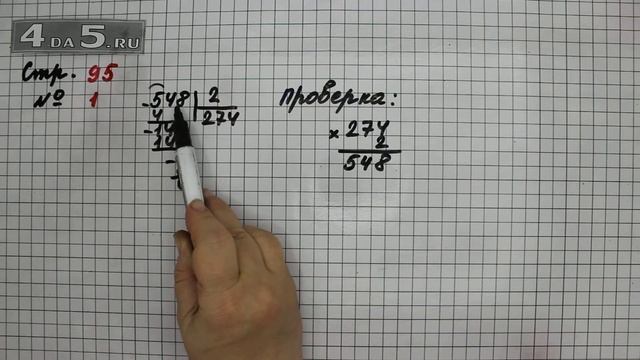 4DA5.RU
Стр. 95
№ 1
Проверка:
- 548 | 2
4 274
- 14
14
-
× 274
2
548